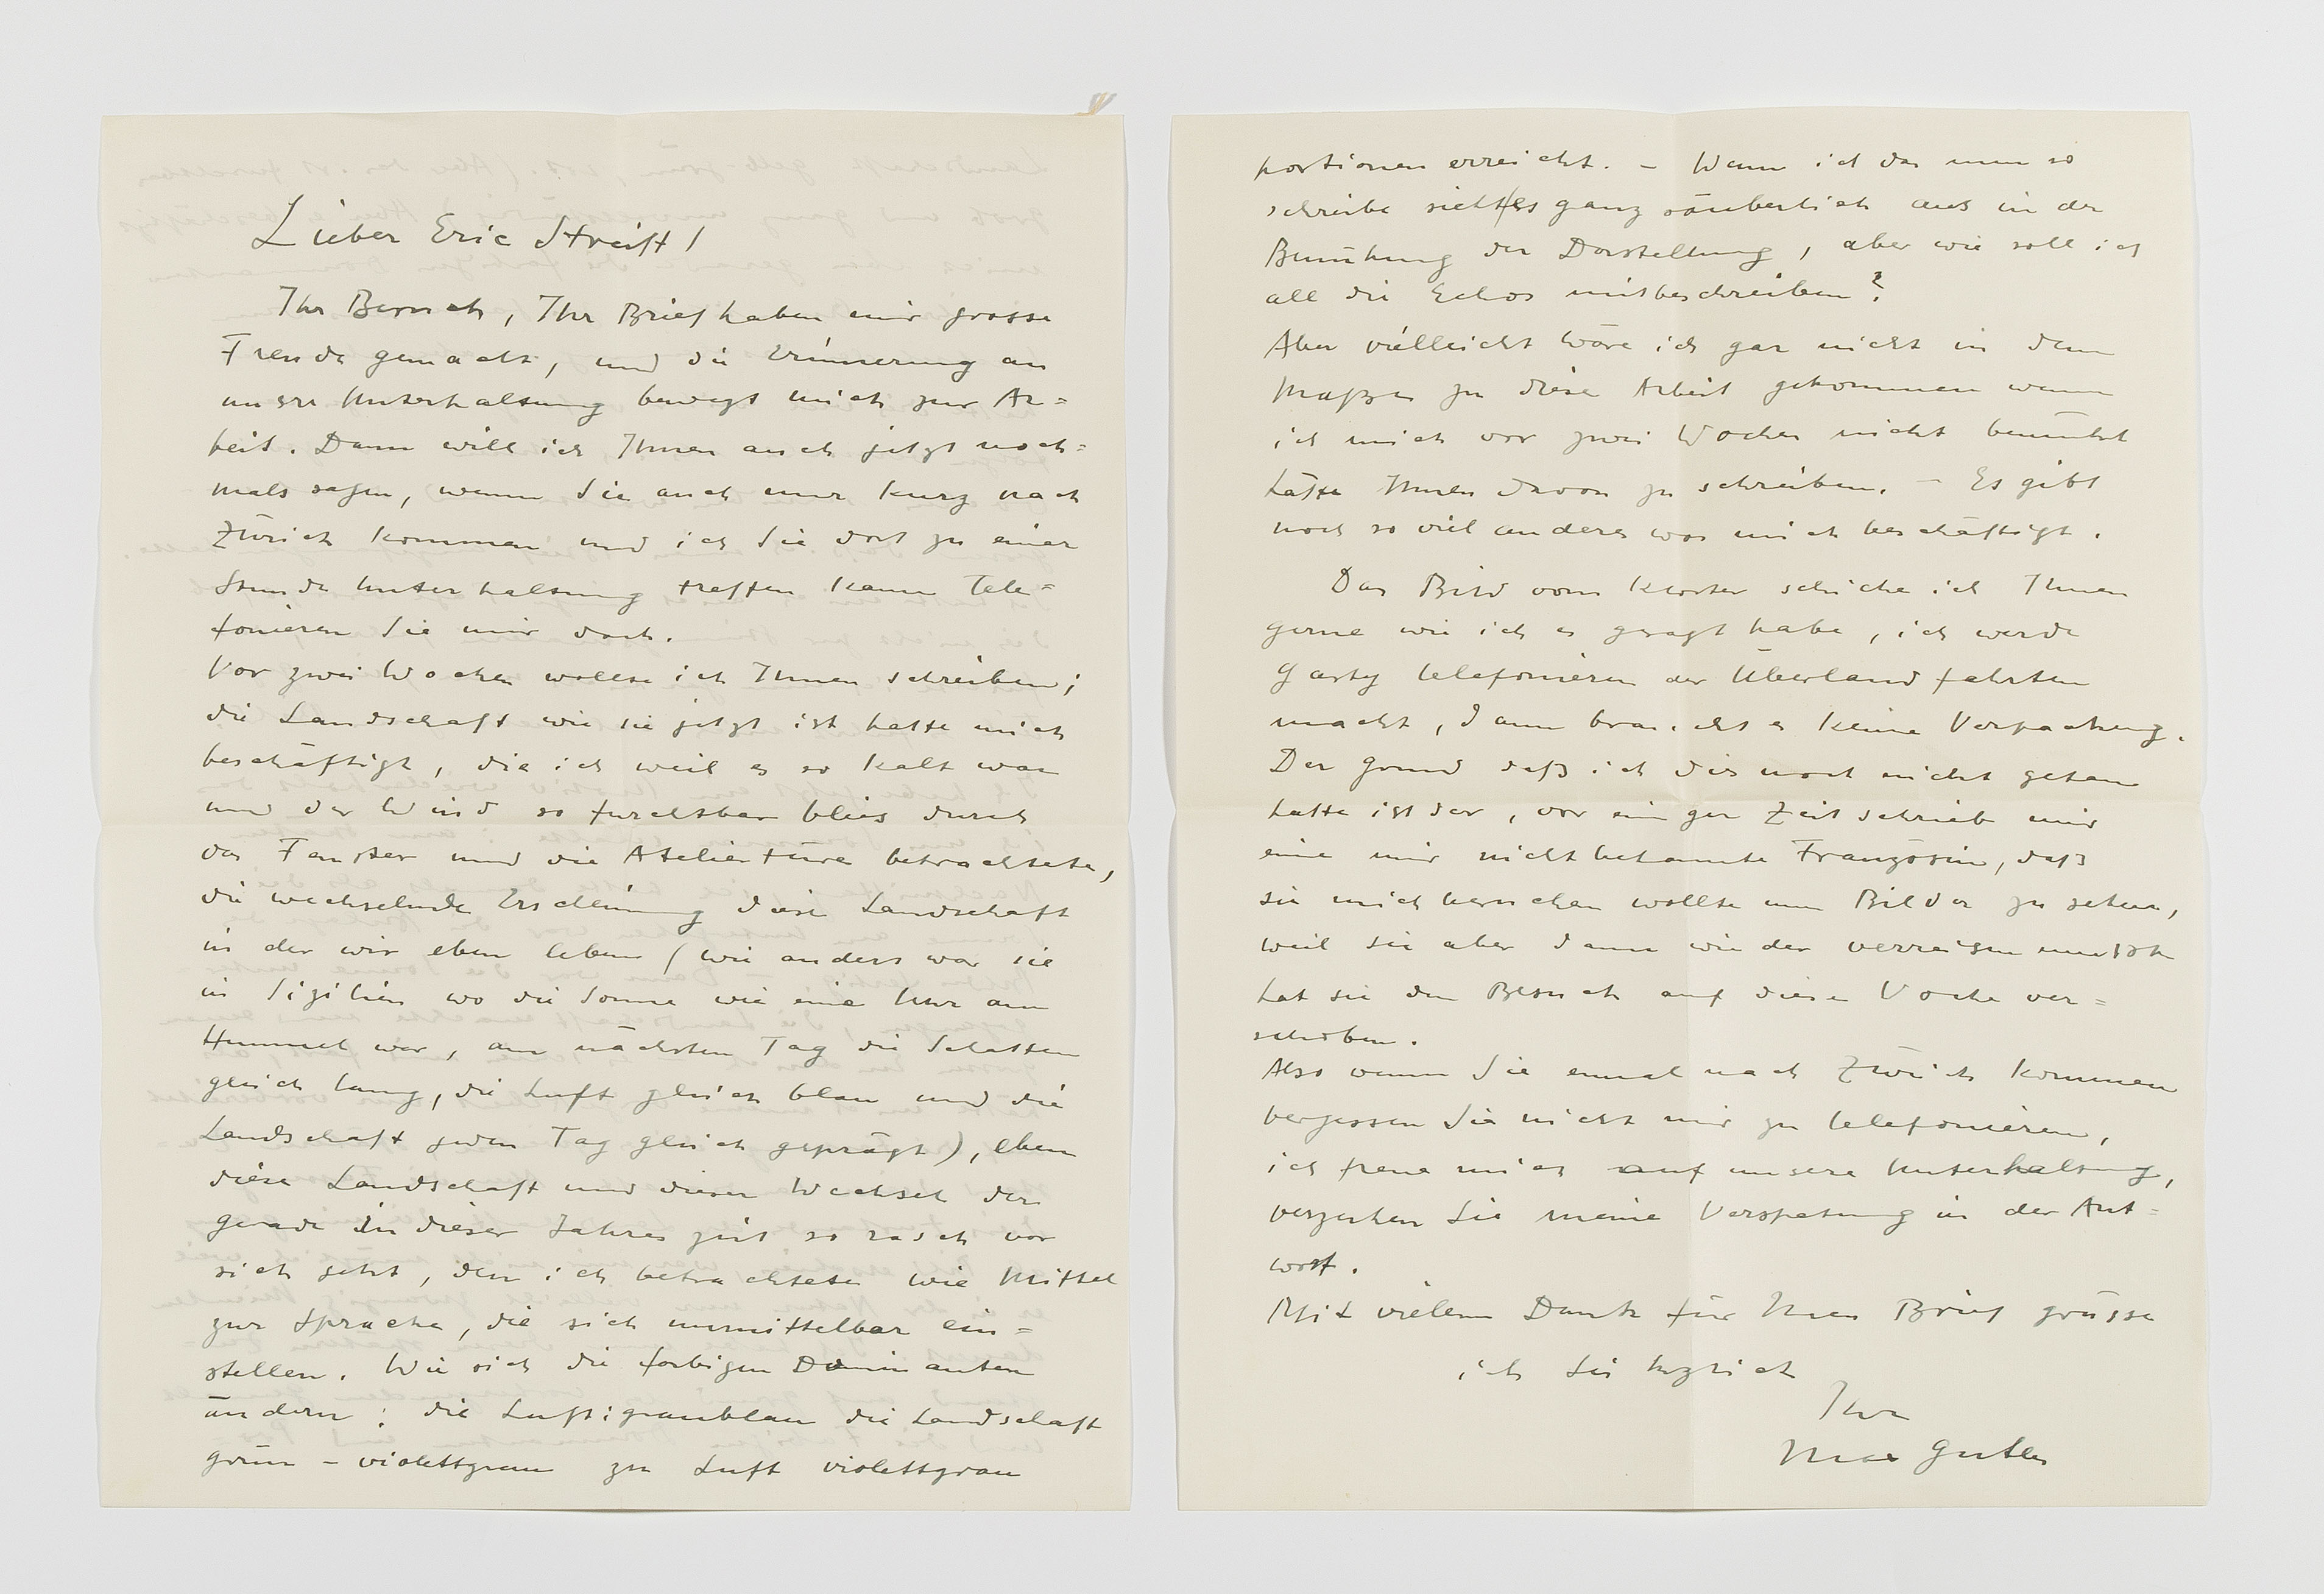 Lieber Eric Streiff!
Ihr Besuch, Ihr Brief haben mir grosse
Freude gemacht, und die Erinnerung an
unsre Unterhaltung bewegt mich zur Ar=
beit. Dann will ich Ihnen auch jetzt noch=
mals sagen, wenn Sie auch nur kurz nach
Zürich kommen und ich Sie dort zu einer
Stunde Unterhaltung treffen kann tele=
fonieren Sie mir doch.
Vor zwei Wochen wollte ich Ihnen schreiben;
die Landschaft wie sie jetzt ist hatte mich
beschäftigt, die ich weil es so kalt war
und der Wind so furchtbar blies durch
das Fenster und die Ateliertüre betrachtete,
die wechselnde Erscheinung dieser Landschaft
in der wir eben leben (wie anders war sie
in Sizilien wo die Sonne wie eine Uhr am
Himmel war, am nächsten Tag die Schatten
gleich lang, die Luft gleich blau und die
Landschaft jeden Tag gleich geprägt), eben
diese Landschaft und dieser Wechsel der
gerade in dieser Jahreszeit so rasch vor
sich geht, den ich betrachtete wie Mittel
zur Sprache, die sich unmittelbar ein=
stellen. Wie sich die farbigen Dominanten
ändern: die Luft: graublau die Landschaft
grün - violettgrau zu Luft violettgrau
portionen erreicht. - Wenn ich das nun so
schreibe sieht es ganz säuberlich aus in der
Bemühung der Darstellung, aber wie soll ich
all die Echos mitbeschreiben?
Aber vielleicht wäre ich gar nicht in dem
Maßen zu diese Arbeit gekommen wenn
ich mich vor zwei Wochen nicht bemüht
hätte Ihnen davon zu schreiben. - Es gibt
noch so viel anderes was mich beschäftigt.
Das Bild vom Kloster schicke ich Ihnen
gerne wie ich es gesagt habe, ich werde
telefonieren der Überlandfahrten
macht, dann braucht es keine Verpackung.
Der Grund daß ich dies noch nicht getan
hatte ist der, vor einiger Zeit schrieb mir
eine mir nicht bekannte Französin, daß
sie mich besuchen wollte um Bilder zu sehen,
weil sie aber dann wieder verreisen mußte
hat sie den Besuch auf diese Woche ver=
schoben.
Also wenn Sie einmal nach Zürich kommen
vergessen Sie nicht mir zu telefonieren,
ich freue mich auf unsere Unterhaltung,
verzeihen Sie meine Verspätung in der Ant=
wort.
Mit vielem Dank für Ihren Brief grüsse
ich Sie herzlich
Ihr
Max Gubler